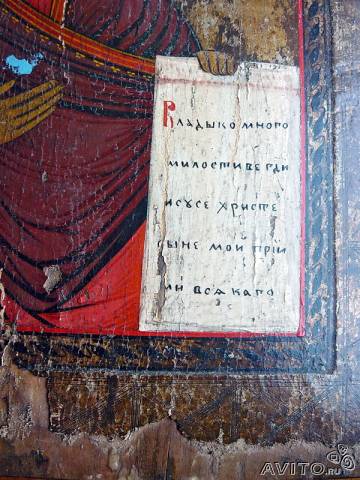 Владыко много
милостиве гди
исусе христе
сыне мои прїи
ми всѧкаго
AVITO.RU